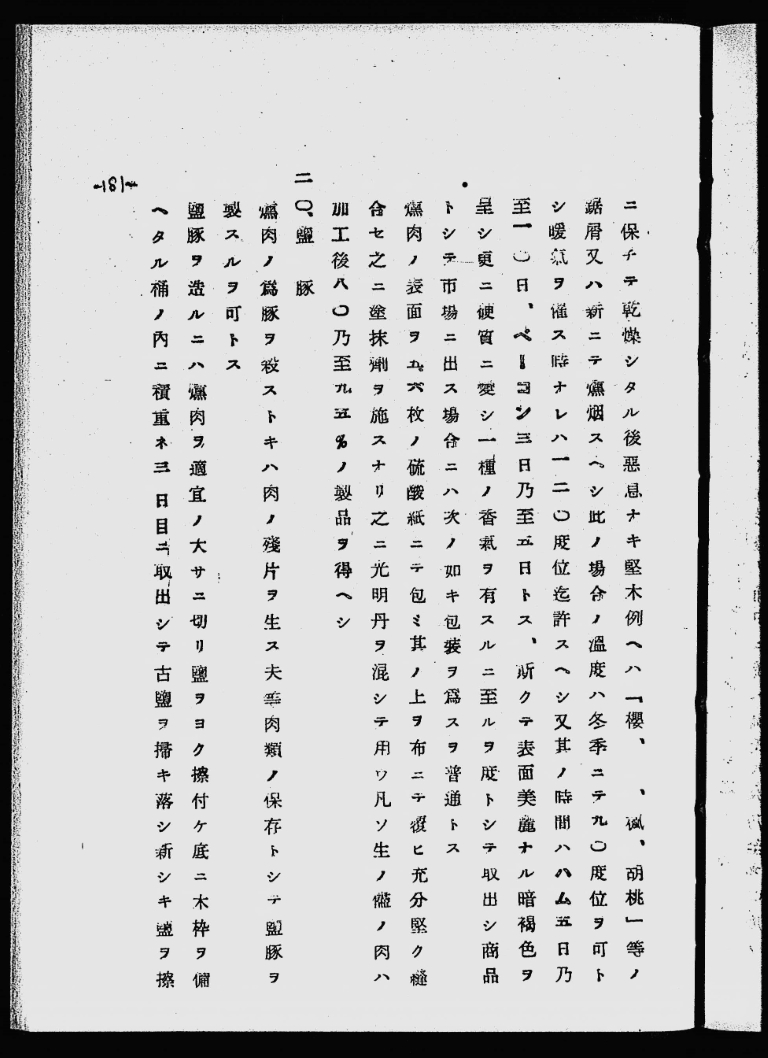 ニ保チテ乾燥シタル後惡息ナキ堅木例ヘハ「櫻、、楓、胡桃」等ノ
鋸屑又ハ新ニテ燻烟スヘシ此ノ場合ノ溫度ハ冬季ニテ九〇度位ヲ可ト
シ暖氣ヲ催ス時ナレハ一二〇度位迄許スヘシ又其ノ時間ハハム五日乃
至一〇日、ベーコン三日乃至五日トス、斯クテ表面美麗ナル暗褐色ヲ
呈シ更ニ硬質ニ變シ一種ノ香氣ヲ有スルニ至ルヲ度トシテ取出シ商品
トシテ市場ニ出ス場合ニハ次ノ如キ包裝ヲ爲スヲ普通トス
燻肉ノ表面ヲ五六枚ノ硫酸紙ニテ包ミ其ノ上ヲ布ニテ覆ヒ充分堅ク縫
合セ之ニ塗抹劑ヲ施スナリ之ニ光明丹ヲ混シテ用ウ凡ソ生ノ儘ノ肉ハ
加工後八〇乃至九五%ノ製品ヲ得ヘシ
二〇、鹽豚
燻肉ノ爲豚ヲ殺ストキハ肉ノ殘片ヲ生ス夫等肉類ノ保存トシテ鹽豚ヲ
製スルヲ可トス
鹽豚ヲ造ルニハ燻肉ヲ適宜ノ大サニ切リ鹽ヲヨク擦付ケ底ニ木枠ヲ備
ヘタル桶ノ內ニ積重ネ三日目ニ取出シテ古鹽ヲ掃キ落シ新シキ鹽ヲ擦
-181-